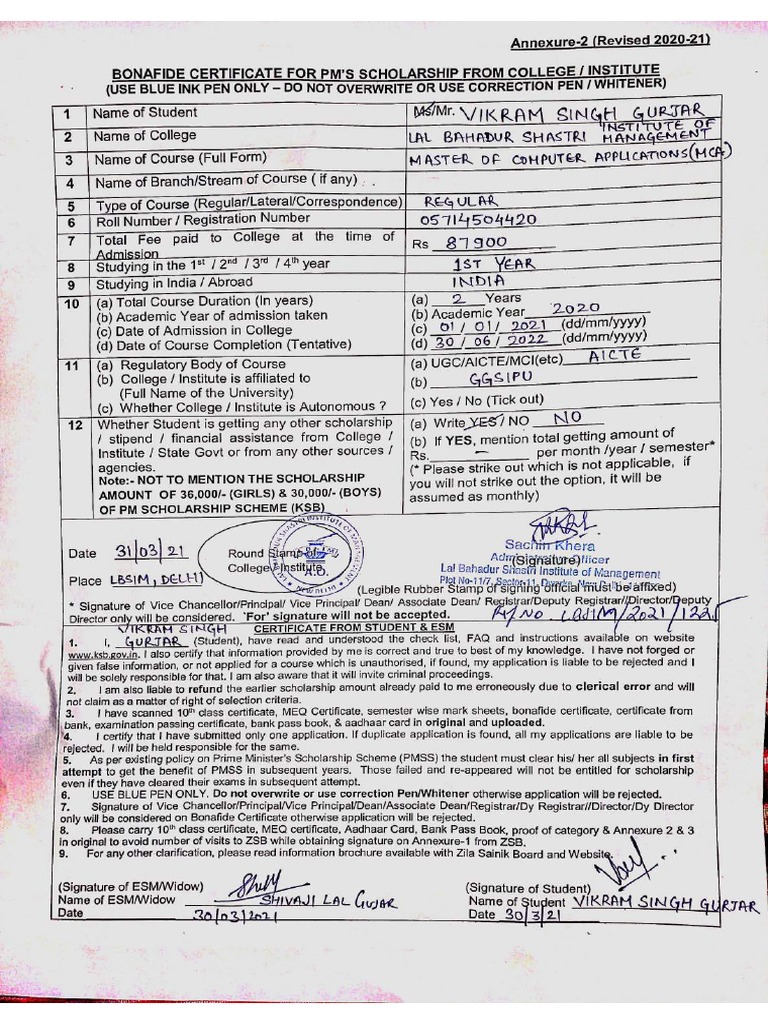 Annexure-2 (Revised 2020-21)
BONAFIDE CERTIFICATE FOR PM'S SCHOLARSHIP FROM COLLEGE / INSTITUTE
(USE BLUE INK PEN ONLY – DO NOT OVERWRITE OR USE CORRECTION PEN / WHITENER)
1 Name of Student Ms/Mr. VIKRAM SINGH GURJAR
2 Name of College LAL BAHADUR SHASTRI INSTITUTE OF MANAGEMENT
3 Name of Course (Full Form) MASTER OF COMPUTER APPLICATIONS (MCA)
4 Name of Branch/Stream of Course ( if any)
5 Type of Course (Regular/Lateral/Correspondence) REGULAR
6 Roll Number / Registration Number 05714504420
7 Total Fee paid to College at the time of Admission Rs 87900
8 Studying in the 1st / 2nd / 3rd / 4th year 1ST YEAR
9 Studying in India / Abroad INDIA
10 (a) Total Course Duration (In years) (a) 2 Years
(b) Academic Year of admission taken (b) Academic Year 2020
(c) Date of Admission in College (c) 01 / 01 / 2021 (dd/mm/yyyy)
(d) Date of Course Completion (Tentative) (d) 30 / 06 / 2022 (dd/mm/yyyy)
11 (a) Regulatory Body of Course (a) UGC/AICTE/MCI(etc) AICTE
(b) College / Institute is affiliated to (b) GGSIPU
(Full Name of the University)
(c) Whether College / Institute is Autonomous ? (c) Yes / No (Tick out)
12 Whether Student is getting any other scholarship (a) Write YES / NO NO
/ stipend / financial assistance from College / (b) If YES, mention total getting amount of
Institute / State Govt or from any other sources / Rs. – per month /year / semester*
agencies. (* Please strike out which is not applicable, if
Note:- NOT TO MENTION THE SCHOLARSHIP you will not strike out the option, it will be
AMOUNT OF 36,000/- (GIRLS) & 30,000/- (BOYS) assumed as monthly)
OF PM SCHOLARSHIP SCHEME (KSB)
Sachin Khera
Date 31/03/21 Round Stamp of Administrative Officer
(Signature)
College / Institute Lal Bahadur Shastri Institute of Management
Place LBSIM, DELHI A.O. Plot No-11/7, Sector-11, Dwarka, New Delhi
(Legible Rubber Stamp of signing official must be affixed)
* Signature of Vice Chancellor/Principal/ Vice Principal/ Dean/ Associate Dean/ Registrar/Deputy Registrar//Director/Deputy
Director only will be considered. 'For' signature will not be accepted. LBSIM/2021/1225
CERTIFICATE FROM STUDENT & ESM
1. I, VIKRAM SINGH GURJAR (Student), have read and understood the check list, FAQ and instructions available on website
www.ksb.gov.in. I also certify that information provided by me is correct and true to best of my knowledge. I have not forged or
given false information, or not applied for a course which is unauthorised, if found, my application is liable to be rejected and I
will be solely responsible for that. I am also aware that it will invite criminal proceedings.
2. I am also liable to refund the earlier scholarship amount already paid to me erroneously due to clerical error and will
not claim as a matter of right of selection criteria.
3. I have scanned 10th class certificate, MEQ Certificate, semester wise mark sheets, bonafide certificate, certificate from
bank, examination passing certificate, bank pass book, & aadhaar card in original and uploaded.
4. I certify that I have submitted only one application. If duplicate application is found, all my applications are liable to be
rejected. I will be held responsible for the same.
5. As per existing policy on Prime Minister's Scholarship Scheme (PMSS) the student must clear his/ her all subjects in first
attempt to get the benefit of PMSS in subsequent years. Those failed and re-appeared will not be entitled for scholarship
even if they have cleared their exams in subsequent attempt.
6. USE BLUE PEN ONLY. Do not overwrite or use correction Pen/Whitener otherwise application will be rejected.
7. Signature of Vice Chancellor/Principal/Vice Principal/Dean/Associate Dean/Registrar/Dy Registrar//Director/Dy Director
only will be considered on Bonafide Certificate otherwise application will be rejected.
8. Please carry 10th class certificate, MEQ certificate, Aadhaar Card, Bank Pass Book, proof of category & Annexure 2 & 3
in original to avoid number of visits to ZSB while obtaining signature on Annexure-1 from ZSB.
9. For any other clarification, please read information brochure available with Zila Sainik Board and Website.
(Signature of ESM/Widow) (Signature of Student)
Name of ESM/Widow SHIVAJI LAL GUJAR Name of Student VIKRAM SINGH GURJAR
Date 30/03/2021 Date 30/3/21